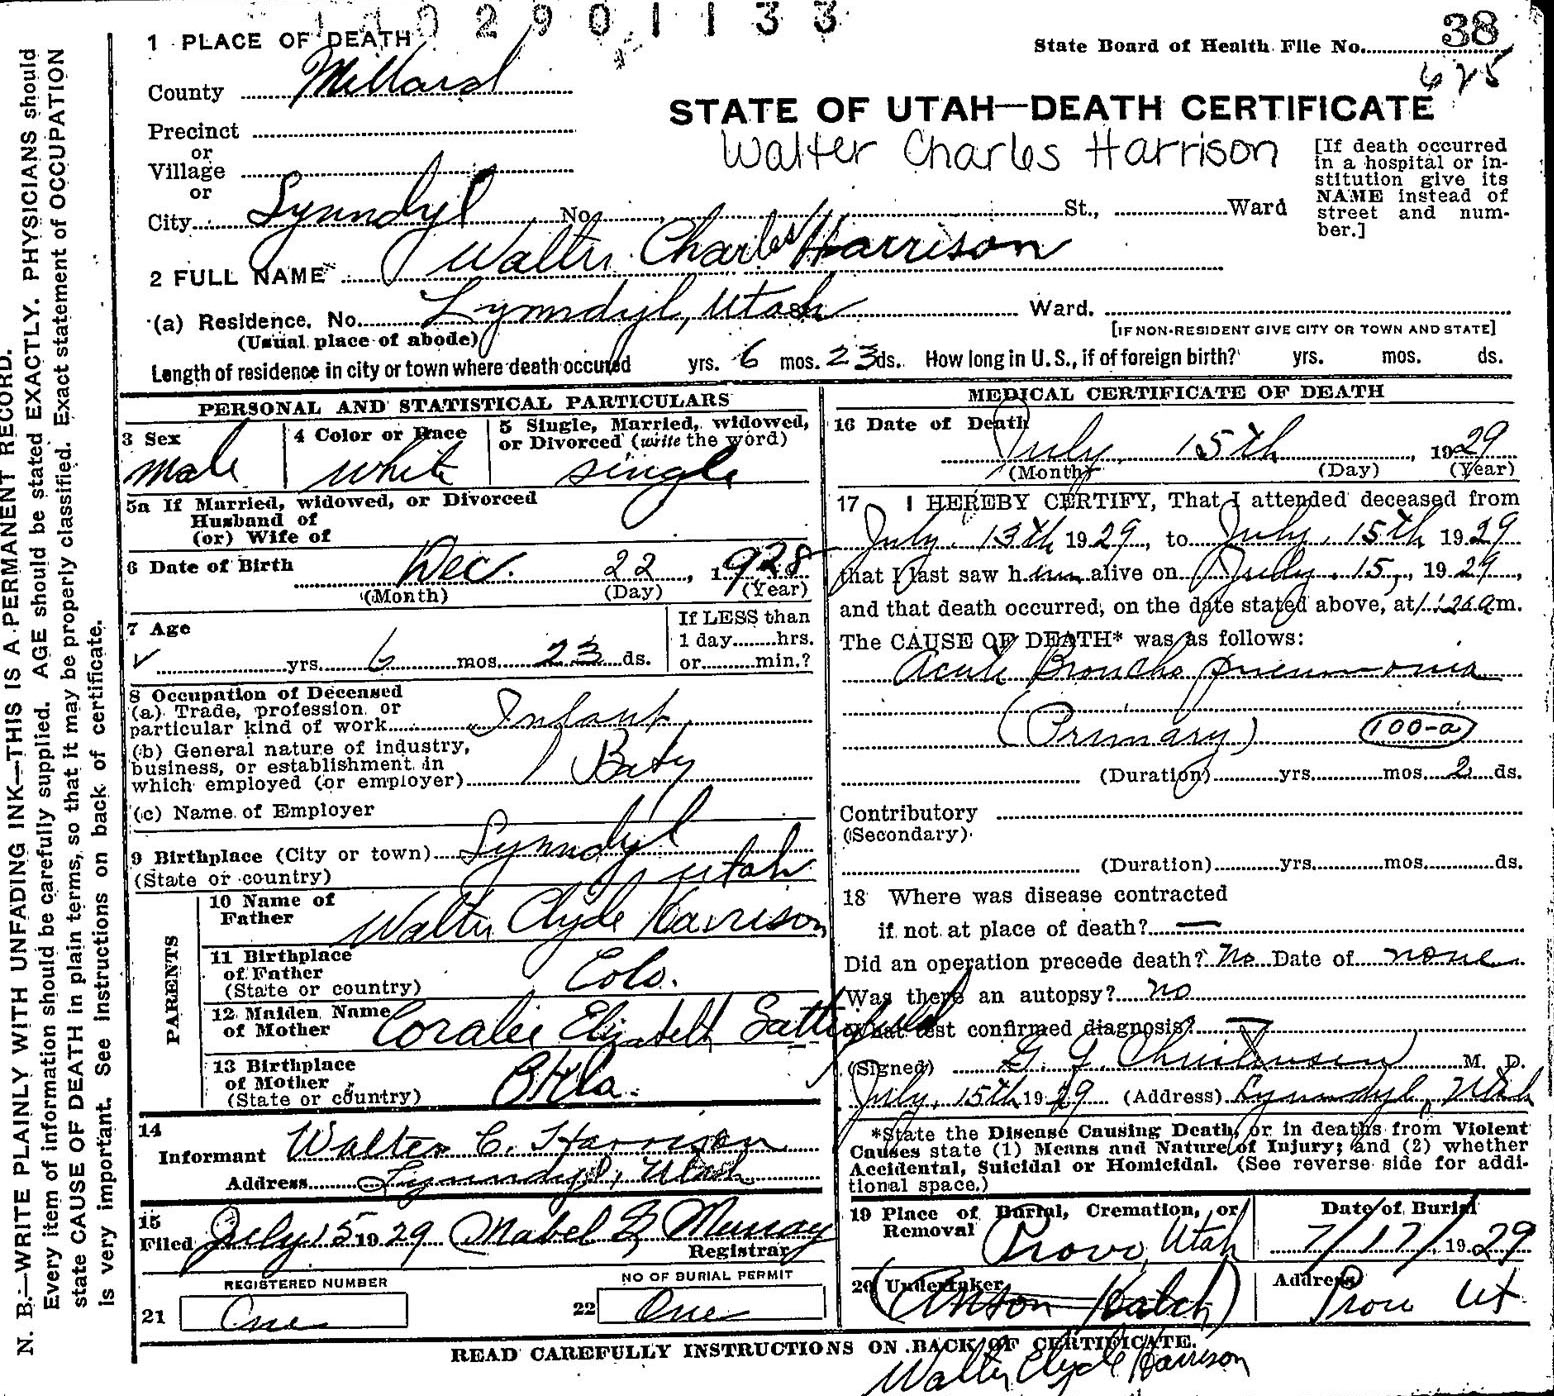 2901133
1 PLACE OF DEATH
State Board of Health File No. 38
625
County Millard
STATE OF UTAH—DEATH CERTIFICATE
Precinct
or
Walter Charles Harrison
Village
or
[If death occurred
in a hospital or in-
stitution give its
NAME instead of
street and num-
ber.]
City Lynndyl No. St., Ward
2 FULL NAME Walter Charles Harrison
(a) Residence. No. Lynndyl, Utah St. Ward.
(Usual place of abode)
[IF NON-RESIDENT GIVE CITY OR TOWN AND STATE]
Length of residence in city or town where death occured yrs. 6 mos. 23 ds. How long in U.S., if of foreign birth? yrs. mos. ds.
PERSONAL AND STATISTICAL PARTICULARS
3 Sex
male
4 Color or Race
white
5 Single, Married, widowed,
or Divorced (write the word)
single
5a If Married, widowed, or Divorced
Husband of
(or) Wife of
6 Date of Birth Dec. 22, 1928
(Month) (Day) (Year)
7 Age
yrs. 6 mos. 23 ds.
If LESS than
1 day hrs.
or min.?
8 Occupation of Deceased
(a) Trade, profession, or
particular kind of work Infant
(b) General nature of industry,
business, or establishment in
which employed (or employer) Baby
(c) Name of Employer
9 Birthplace (City or town) Lynndyl
(State or country) Utah
PARENTS
10 Name of
Father Walter Clyde Harrison
11 Birthplace
of Father
(State or country) Colo.
12 Maiden Name
of Mother Coralie Elizabeth Satterfield
13 Birthplace
of Mother
(State or country) Okla.
14
Informant Walter C. Harrison
Address Lynndyl, Utah
15
Filed July 15 1929 Mabel G Murray
Registrar
REGISTERED NUMBER
21 One
NO OF BURIAL PERMIT
22 One
MEDICAL CERTIFICATE OF DEATH
16 Date of Death
July 15th, 1929
(Month) (Day) (Year)
17 I HEREBY CERTIFY, That I attended deceased from
July 13th 1929, to July 15th 1929
that I last saw him alive on July 15, 1929,
and that death occurred, on the date stated above, at 1:26 am.
The CAUSE OF DEATH* was as follows:
Acute Broncho pneumonia
(Primary) 100-a
(Duration) yrs. mos. 2 ds.
Contributory
(Secondary)
(Duration) yrs. mos. ds.
18 Where was disease contracted
if not at place of death? —
Did an operation precede death? No Date of none
Was there an autopsy? no
What test confirmed diagnosis? —
(Signed) G. J. Christensen M. D.
July 15th 1929 (Address) Lynndyl, Utah
*State the Disease Causing Death, or in deaths from Violent
Causes state (1) Means and Nature of Injury; and (2) whether
Accidental, Suicidal or Homicidal. (See reverse side for addi-
tional space.)
19 Place of Burial, Cremation, or
Removal Provo, Utah
Date of Burial
7/17/, 1929
20 Undertaker
(Anson Hatch)
Address
Provo Ut
READ CAREFULLY INSTRUCTIONS ON BACK OF CERTIFICATE.
Walter Clyde Harrison
N. B.—WRITE PLAINLY WITH UNFADING INK—THIS IS A PERMANENT RECORD.
Every item of information should be carefully supplied. AGE should be stated EXACTLY. PHYSICIANS should
state CAUSE OF DEATH in plain terms, so that it may be properly classified. Exact statement of OCCUPATION
is very important. See instructions on back of certificate.